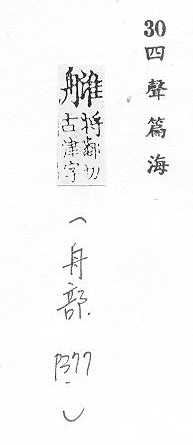 30 四聲篇海
将鄰切
古津字
（舟部 P377）